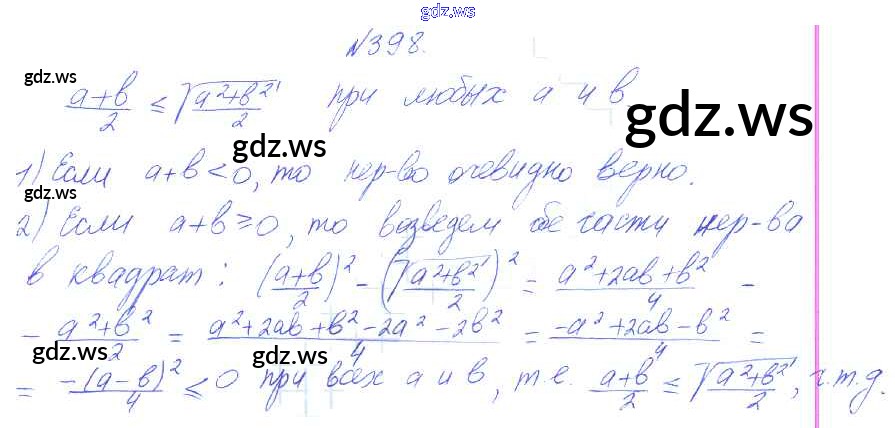 gdz.ws
№398.
gdz.ws
(a+b)/2 ≤ √((a²+b²)/2) при любых a и b
gdz.ws
gdz.ws
1) Если a+b<0, то нер-во очевидно верно.
gdz.ws
2) Если a+b≥0, то возведем обе части нер-ва
в квадрат: ((a+b)/2)² - (√((a²+b²)/2))² = (a²+2ab+b²)/4 -
- (a²+b²)/2 = (a²+2ab+b²-2a²-2b²)/4 = (-a²+2ab-b²)/4 =
gdz.ws gdz.ws
= -(a-b)²/4 ≤ 0 при всех a и b, т.е. (a+b)/2 ≤ √((a²+b²)/2), ч.т.д.